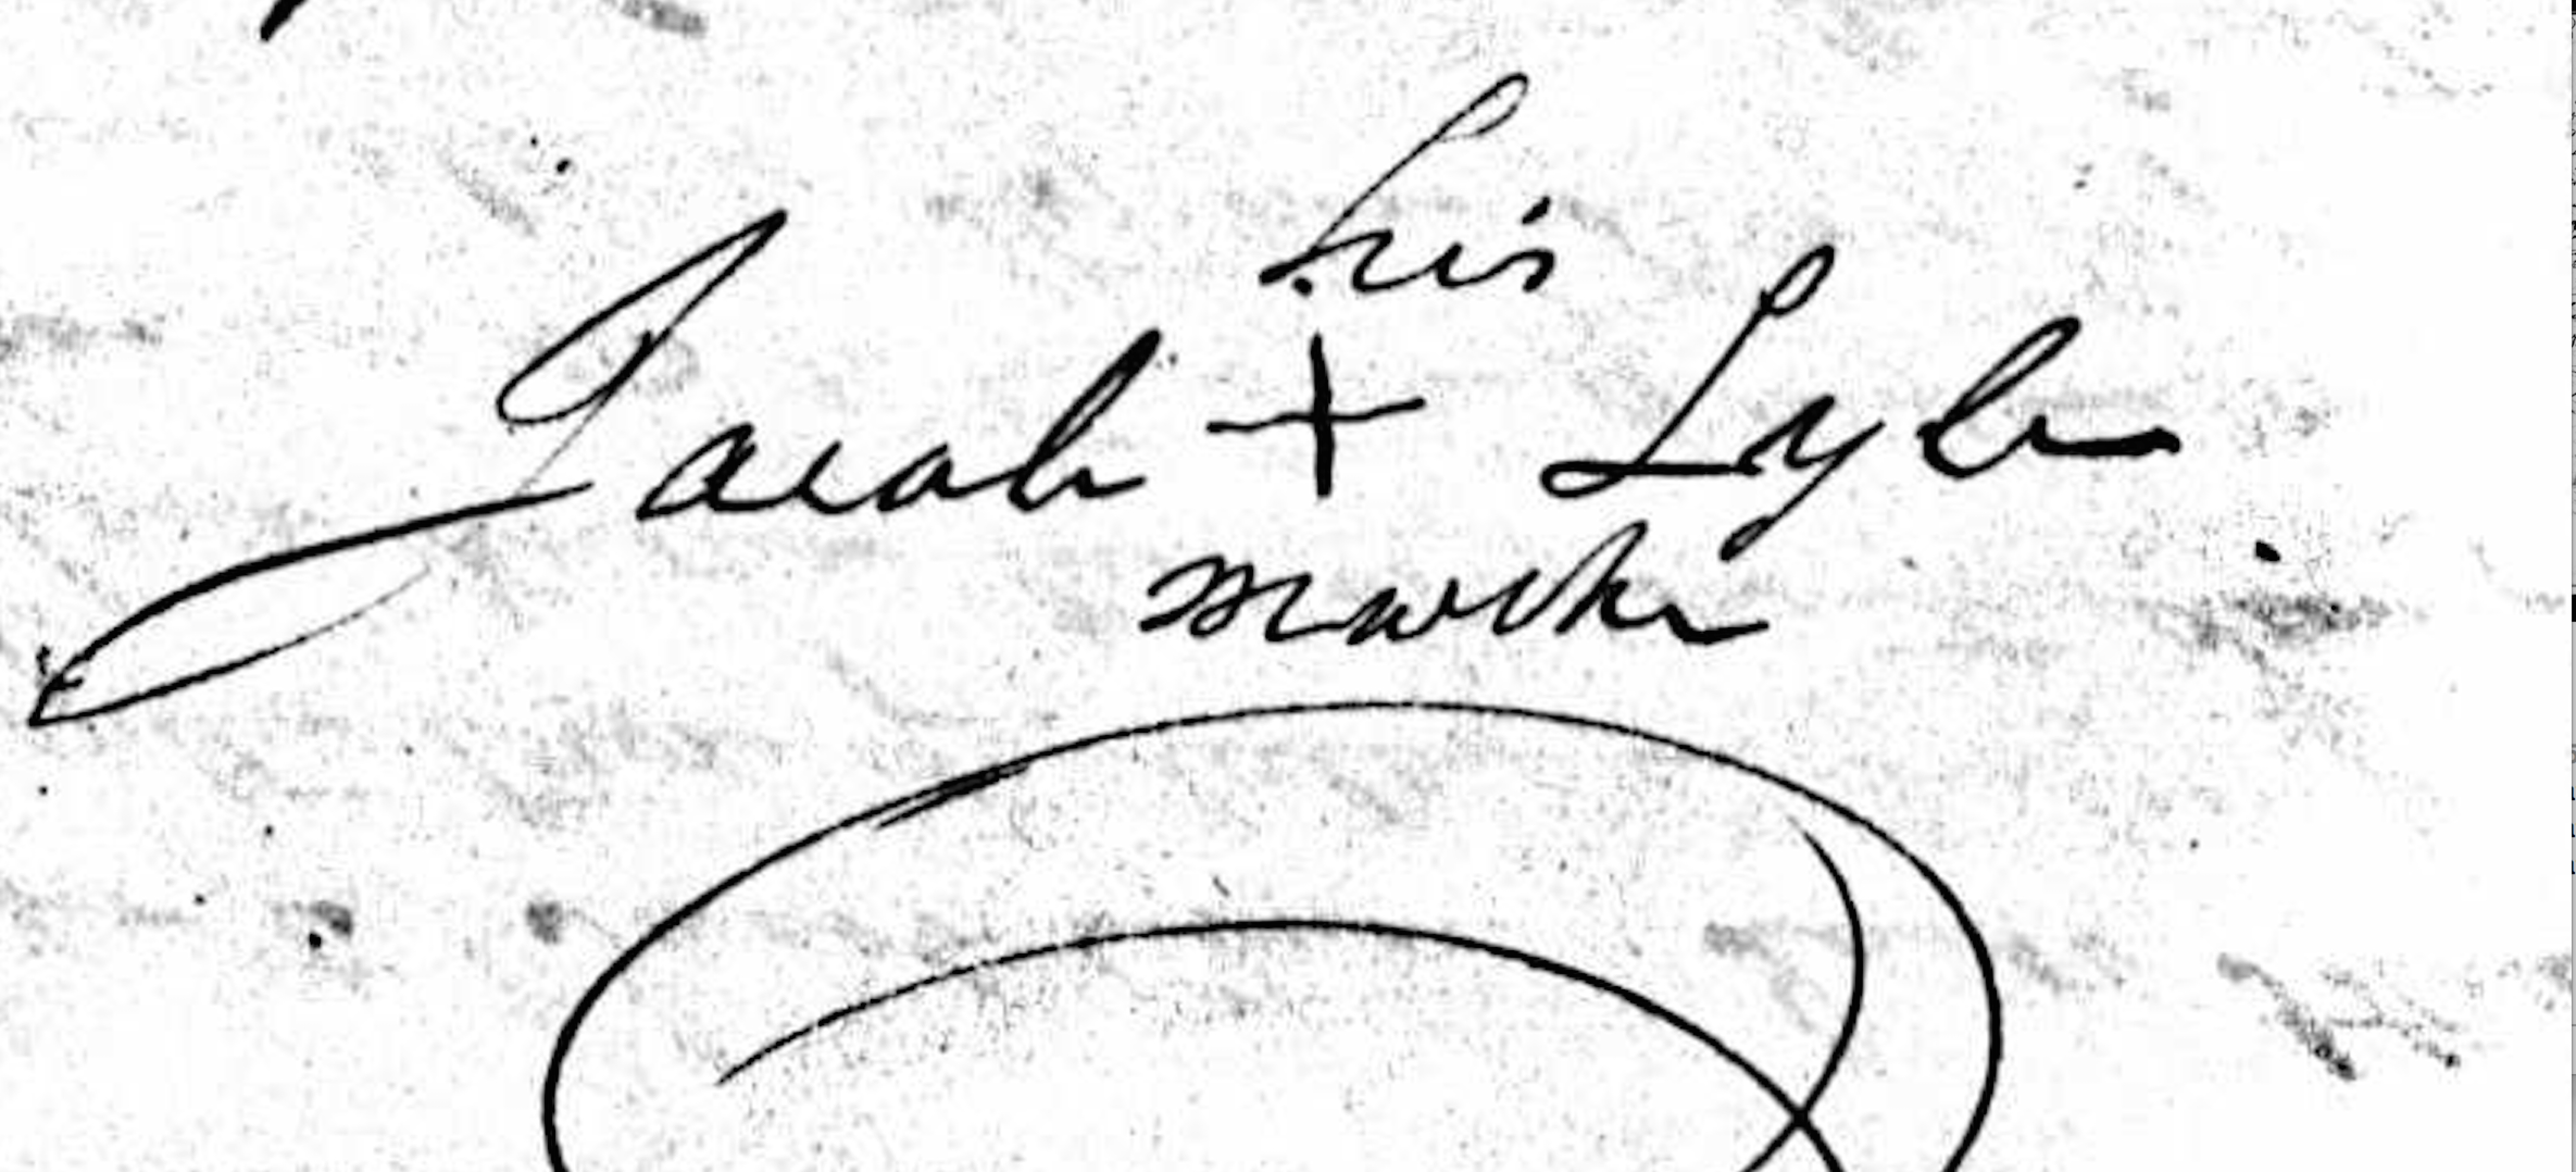 his
Jacob + Lyle
mark